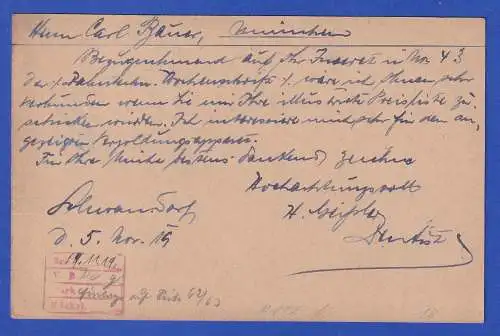 Herrn Carl Bauer, München
Bezugnehmend auf Ihr Inserat in No. 43
der "Zahnärztl. Wochenschrift", wäre ich Ihnen sehr
verbunden wenn Sie mir Ihre illustrierte Preisliste zu
schicken würden. Ich interessiere mich sehr für den an
gezeigten Vergoldungsapparat.
Für Ihre Mühe bestens dankend zeichne
Hochachtungsvoll
H.
Schwandorf
Dentist
d. 5. Nov. 19
19.11.19.
auf Seite 62/63